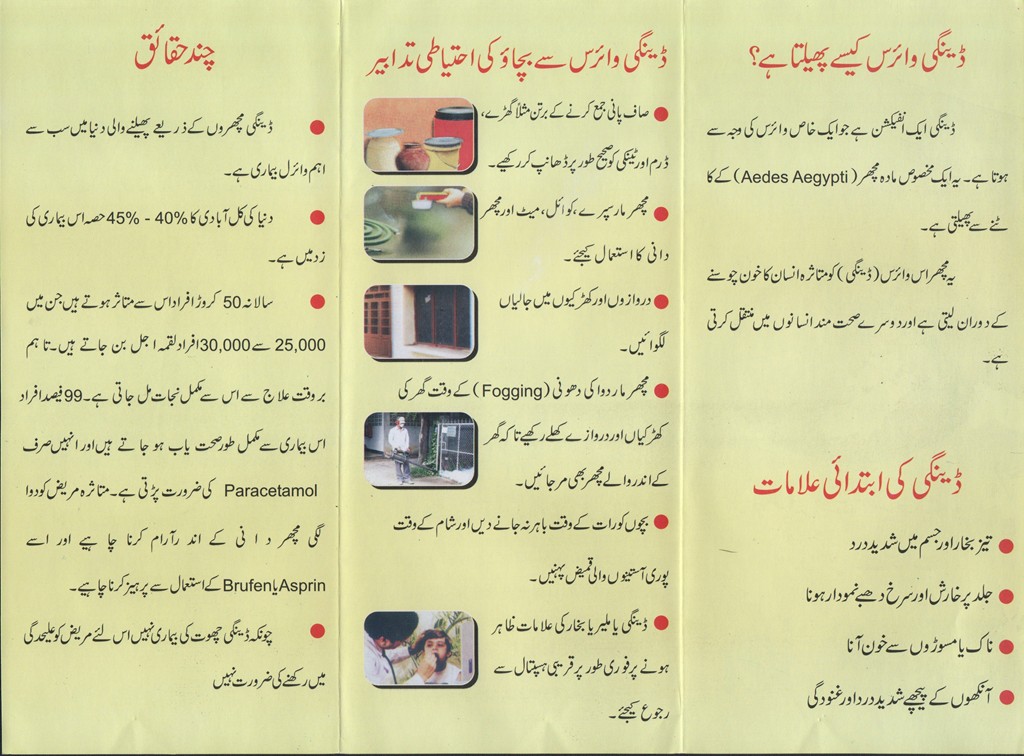 ڈینگی وائرس کیسے پھیلتا ہے؟
ڈینگی ایک انفیکشن ہے جو ایک خاص وائرس کی وجہ سے
ہوتا ہے۔ یہ ایک مخصوص مادہ مچھر (Aedes Aegypti) کے کا
ٹنے سے پھیلتی ہے۔
یہ مچھر اس وائرس (ڈینگی) کو متاثرہ انسان کا خون چوسنے
کے دوران لیتی ہے اور دوسرے صحت مند انسانوں میں منتقل کرتی
ہے۔
ڈینگی کی ابتدائی علامات
● تیز بخار اور جسم میں شدید درد
● جلد پر خارش اور سرخ دھبے نمودار ہونا
● ناک یا مسوڑوں سے خون آنا
● آنکھوں کے پیچھے شدید درد اور غنودگی
ڈینگی وائرس سے بچاؤ کی احتیاطی تدابیر
● صاف پانی جمع کرنے کے برتن مثلاً گھڑے،
ڈرم اور ٹینکی کو صحیح طور پر ڈھانپ کر رکھیے۔
● مچھر مار سپرے، کوائل، میٹ اور مچھر
دانی کا استعمال کیجئے۔
● دروازوں اور کھڑکیوں میں جالیاں
لگوائیں۔
● مچھر مار دوا کی دھونی (Fogging) کے وقت گھر کی
کھڑکیاں اور دروازے کھلے رکھیے تاکہ گھر
کے اندر والے مچھر بھی مر جائیں۔
● بچوں کو رات کے وقت باہر نہ جانے دیں اور شام کے وقت
پوری آستینوں والی قمیض پہنیں۔
● ڈینگی یا ملیریا بخار کی علامات ظاہر
ہونے پر فوری طور پر قریبی ہسپتال سے
رجوع کیجئے۔
چند حقائق
● ڈینگی مچھروں کے ذریعے پھیلنے والی دنیا میں سب سے
اہم وائرل بیماری ہے۔
● دنیا کی کل آبادی کا 40% - 45% حصہ اس بیماری کی
زد میں ہے۔
● سالانہ 50 کروڑ افراد اس سے متاثر ہوتے ہیں جن میں
25,000 سے 30,000 افراد لقمہ اجل بن جاتے ہیں۔ تاہم
بروقت علاج سے اس سے مکمل نجات مل جاتی ہے۔ 99 فیصد افراد
اس بیماری سے مکمل طور صحت یاب ہو جاتے ہیں اور انہیں صرف
Paracetamol کی ضرورت پڑتی ہے۔ متاثرہ مریض کو دوا
لگی مچھر دانی کے اندر آرام کرنا چاہیے اور اسے
Asprin یا Brufen کے استعمال سے پرہیز کرنا چاہیے۔
● چونکہ ڈینگی چھوت کی بیماری نہیں اس لئے مریض کو علیحدگی
میں رکھنے کی ضرورت نہیں